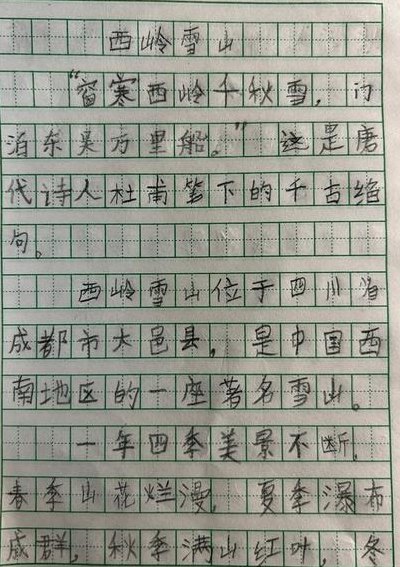 西岭雪山
“窗寒西岭千秋雪,门
泊东吴万里船。”这是唐
代诗人杜甫笔下的千古绝
句。
西岭雪山位于四川省
成都市大邑县,是中国西
南地区的一座著名雪山。
一年四季美景不断,
春季山花烂漫,夏季瀑布
成群,秋季满山红叶,冬